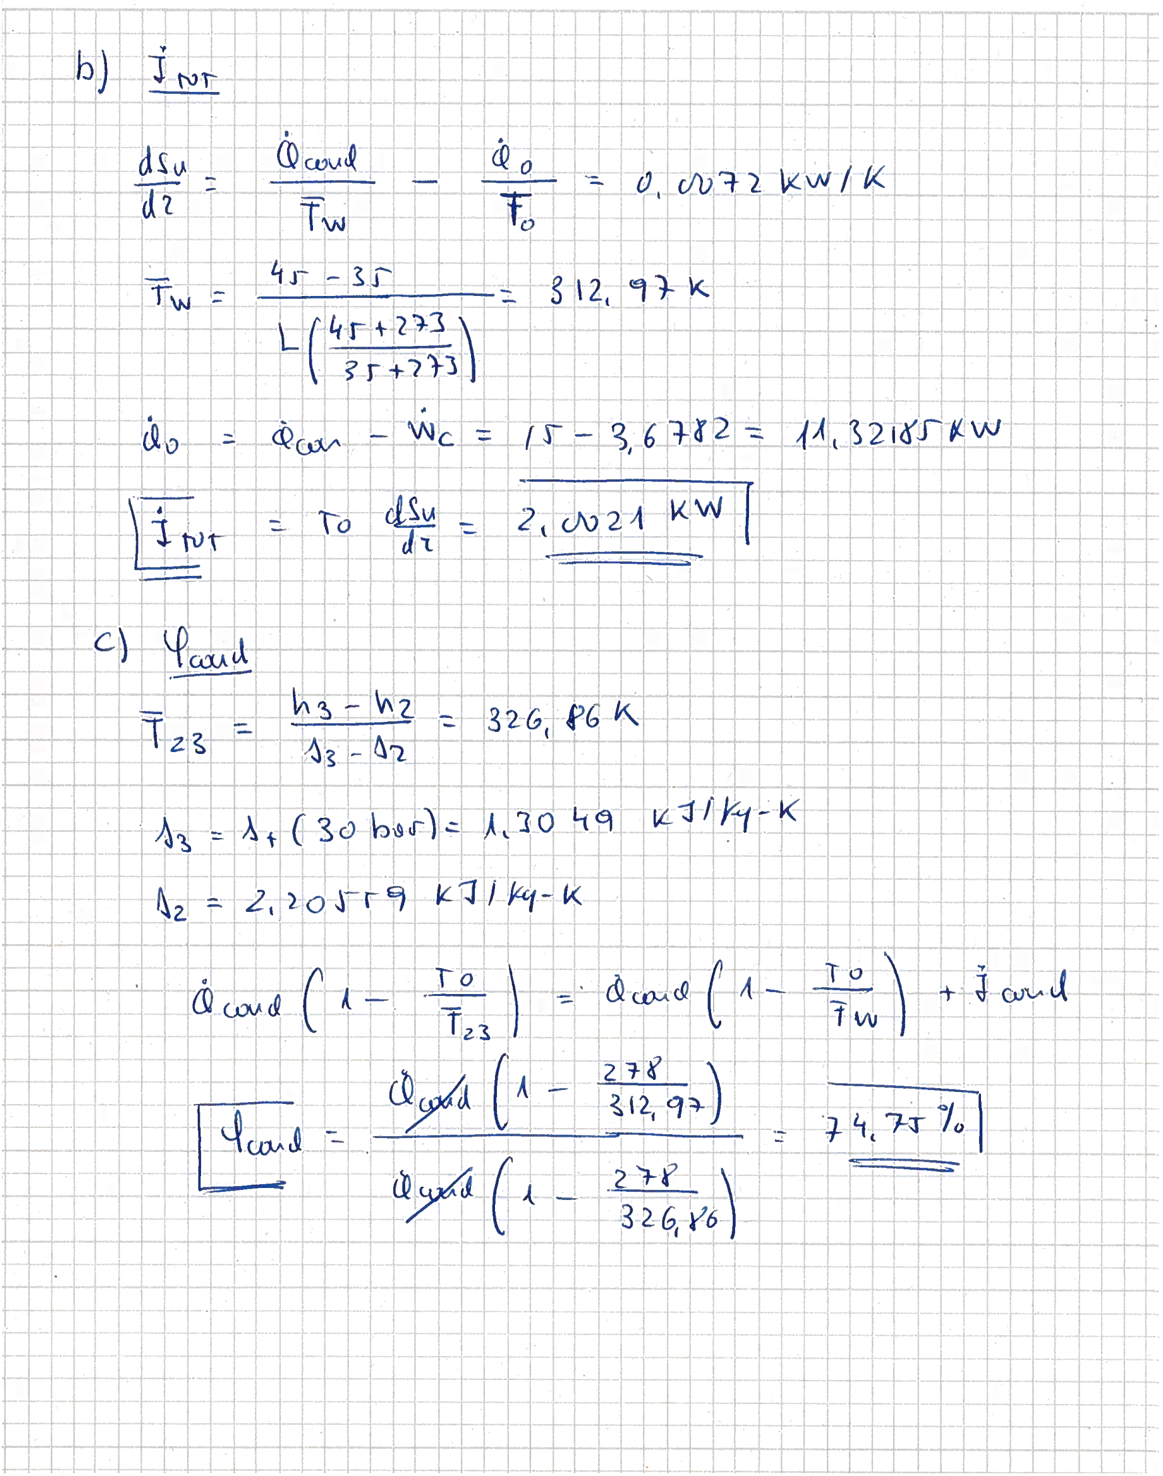 b) İ_TOT
dSu/dτ = Q̇cond/T̄w − Q̇o/T̄o = 0.0072 kW/K
T̄w = (45 − 35)/(L((45+273)/(35+273))) = 312.97 K
Q̇o = Q̇con − Ẇc = 15 − 3,6782 = 11.32185 kW
İ_TOT = To dSu/dτ = 2.0021 kW
c) φcond
T̄23 = (h3 − h2)/(s3 − s2) = 326,86 K
s3 = sf (30 bar) = 1.3049 kJ/kg-K
s2 = 2.20559 kJ/kg-K
Q̇cond (1 − To/T̄23) = Q̇cond (1 − To/T̄w) + İcond
φcond = Q̇cond (1 − 278/312,97) / Q̇cond (1 − 278/326,86) = 74.75%